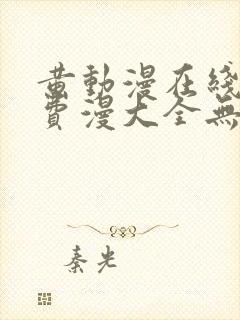 黄動漫在綫
費漫大全無
秦光